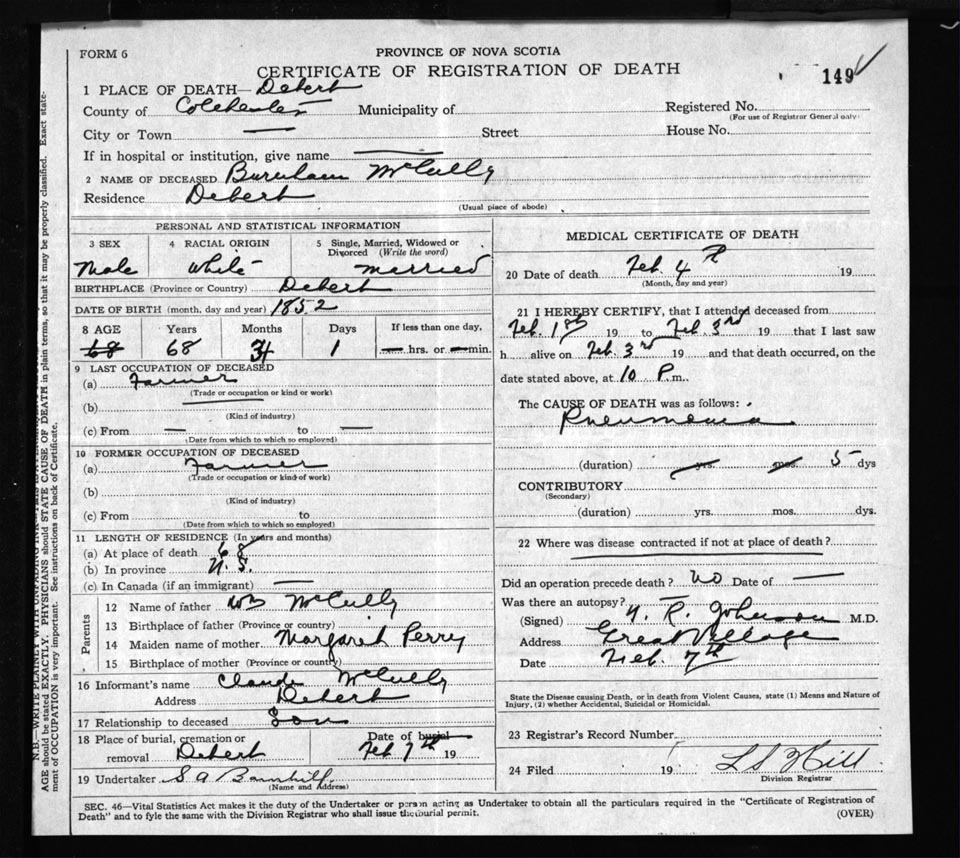 FORM 6
PROVINCE OF NOVA SCOTIA
CERTIFICATE OF REGISTRATION OF DEATH
149
1 PLACE OF DEATH— Debert
County of Colchester Municipality of Registered No.
(For use of Registrar General only)
City or Town — Street House No.
If in hospital or institution, give name —
2 NAME OF DECEASED Burnham McCully
Residence Debert
(Usual place of abode)
PERSONAL AND STATISTICAL INFORMATION
3 SEX 4 RACIAL ORIGIN 5 Single, Married, Widowed or Divorced (Write the word)
Male White married
BIRTHPLACE (Province or Country) Debert
DATE OF BIRTH (month, day and year) 1852
8 AGE Years Months Days If less than one day,
68 68 1 — hrs. or — min.
9 LAST OCCUPATION OF DECEASED
(a) Farmer
(Trade or occupation or kind or work)
(b)
(Kind of industry)
(c) From — to —
(Date from which to which so employed)
10 FORMER OCCUPATION OF DECEASED
(a) Farmer
(Trade or occupation or kind of work)
(b)
(Kind of industry)
(c) From to
(Date from which to which so employed)
11 LENGTH OF RESIDENCE (In years and months)
(a) At place of death 68
(b) In province N. S.
(c) In Canada (if an immigrant) —
Parents
12 Name of father Wm McCully
13 Birthplace of father (Province or country)
14 Maiden name of mother Margaret Perry
15 Birthplace of mother (Province or country)
16 Informant's name Claude McCully
Address Debert
17 Relationship to deceased Son
18 Place of burial, cremation or removal Debert Date of burial Feb 7th 19
19 Undertaker S A Barnhill
(Name and Address)
MEDICAL CERTIFICATE OF DEATH
20 Date of death Feb. 4th 19
(Month, day and year)
21 I HEREBY CERTIFY, that I attended deceased from
Feb. 1st 19 to Feb. 3rd 19 that I last saw
h alive on Feb. 3rd 19 and that death occurred, on the
date stated above, at 10 P.m.
The CAUSE OF DEATH was as follows:
Pneumonia
(duration) yrs. mos. 5 dys
CONTRIBUTORY
(Secondary)
(duration) yrs. mos. dys.
22 Where was disease contracted if not at place of death?
Did an operation precede death? no Date of —
Was there an autopsy? —
(Signed) R. Johnson M.D.
Address Great Village
Date Feb. 7th
State the Disease causing Death, or in death from Violent Causes, state (1) Means and Nature of
Injury, (2) whether Accidental, Suicidal or Homicidal.
23 Registrar's Record Number
24 Filed 19 L S Hill
Division Registrar
SEC. 46—Vital Statistics Act makes it the duty of the Undertaker or person acting as Undertaker to obtain all the particulars required in the "Certificate of Registration of
Death" and to fyle the same with the Division Registrar who shall issue the burial permit.
(OVER)
AGE should be stated EXACTLY. PHYSICIANS should STATE CAUSE OF DEATH in plain terms, so that it may be properly classified. Exact state-
ment of OCCUPATION is very important. See instructions on back of Certificate.